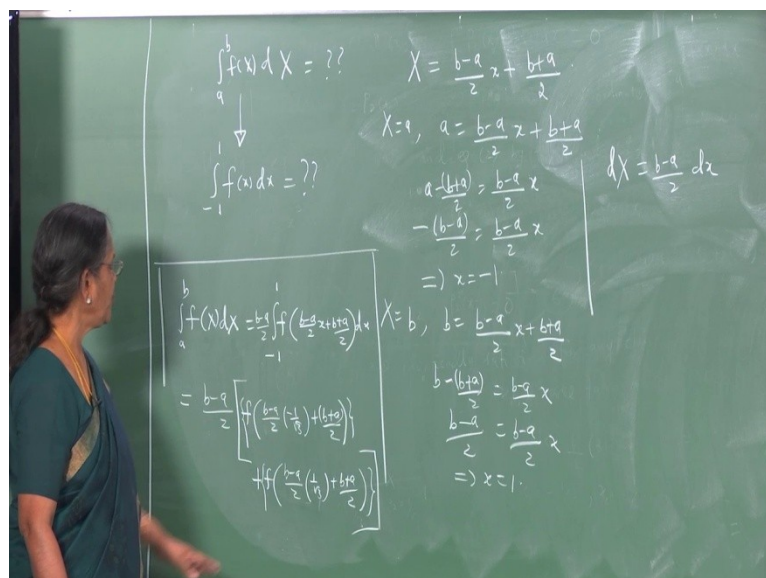 ∫_a^b f(X) dX = ??
↓
∫_{-1}^{1} f(x) dx = ??
∫_a^b f(X) dX = b-a/2 ∫_{-1}^{1} f(b-a/2 x + b+a/2) dx
= b-a/2 [{f(b-a/2 (-1/√3) + (b+a)/2)}
+ {f(b-a/2 (1/√3) + b+a/2)}]
X = b-a/2 x + b+a/2
X=a, a = b-a/2 x + b+a/2
a - (b+a)/2 = b-a/2 x
-(b-a)/2 = b-a/2 x
=> x = -1
X=b, b = b-a/2 x + b+a/2
b - (b+a)/2 = b-a/2 x
b-a/2 = b-a/2 x
=> x = 1.
dX = b-a/2 dx